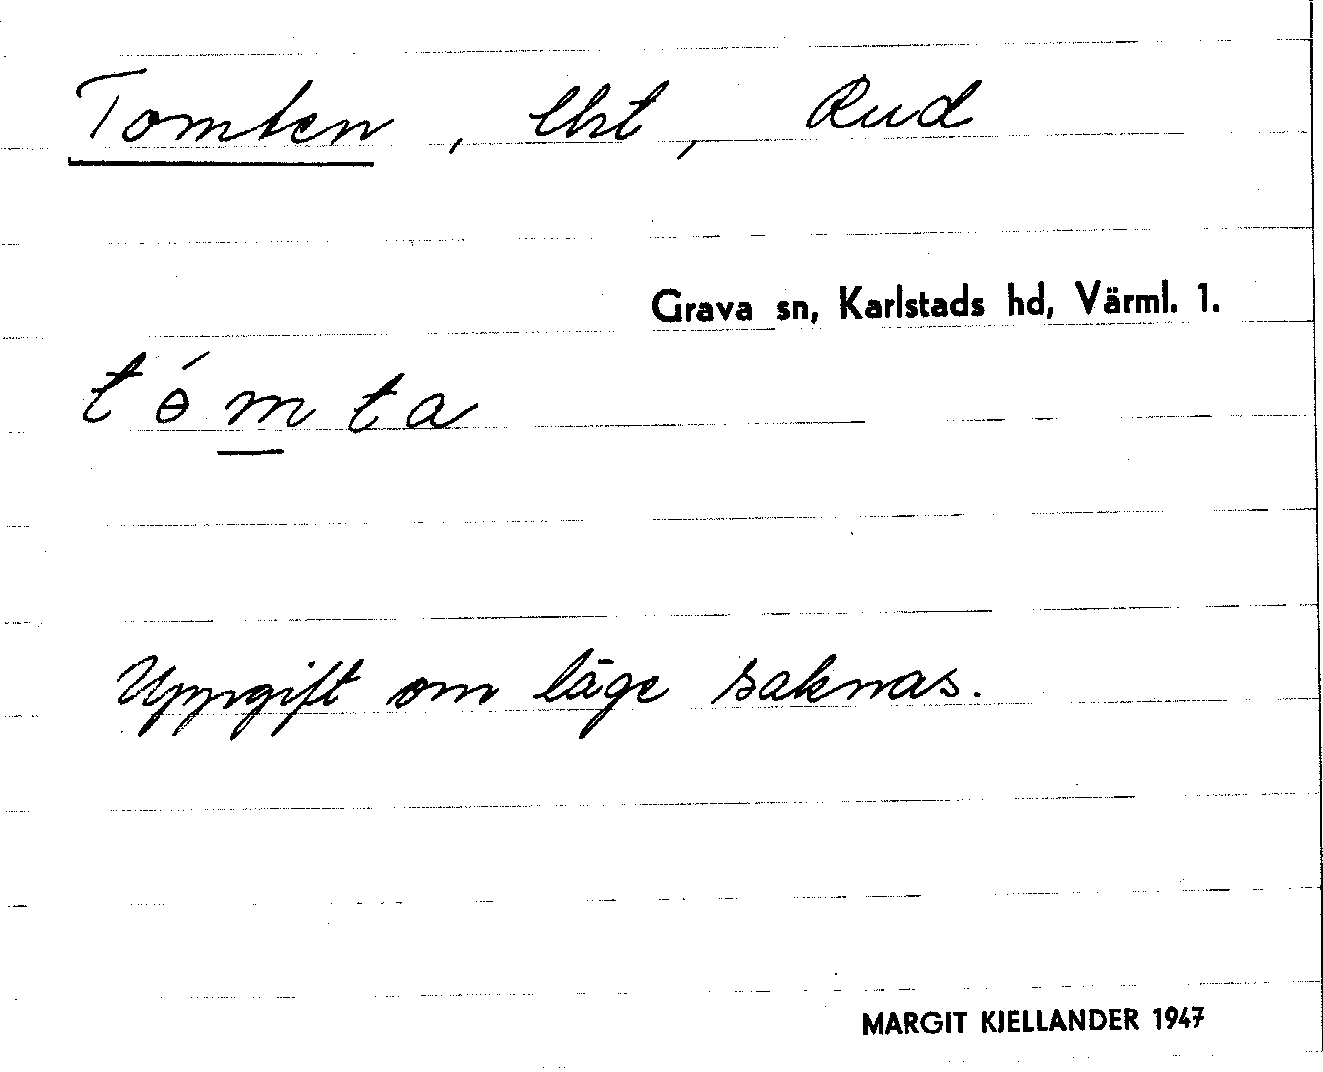 Tomten, lht, Rud
Grava sn, Karlstads hd, Värml. 1.
tɵ́m̲ta
Uppgift om läge saknas.
MARGIT KJELLANDER 1947